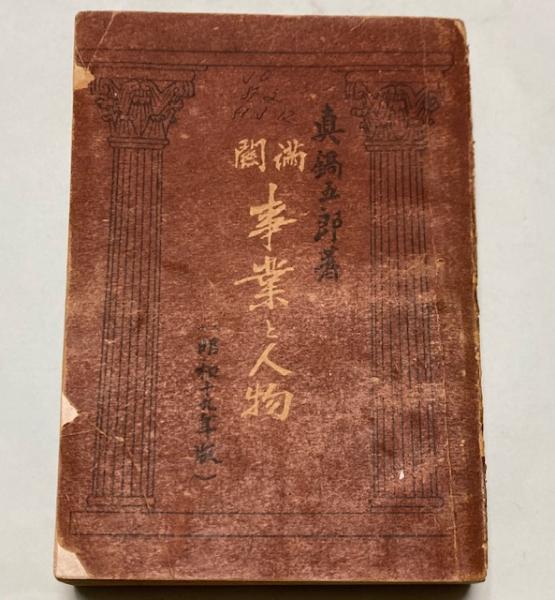 眞鍋五郎著
滿關
事業と人物
(昭和十九年版)